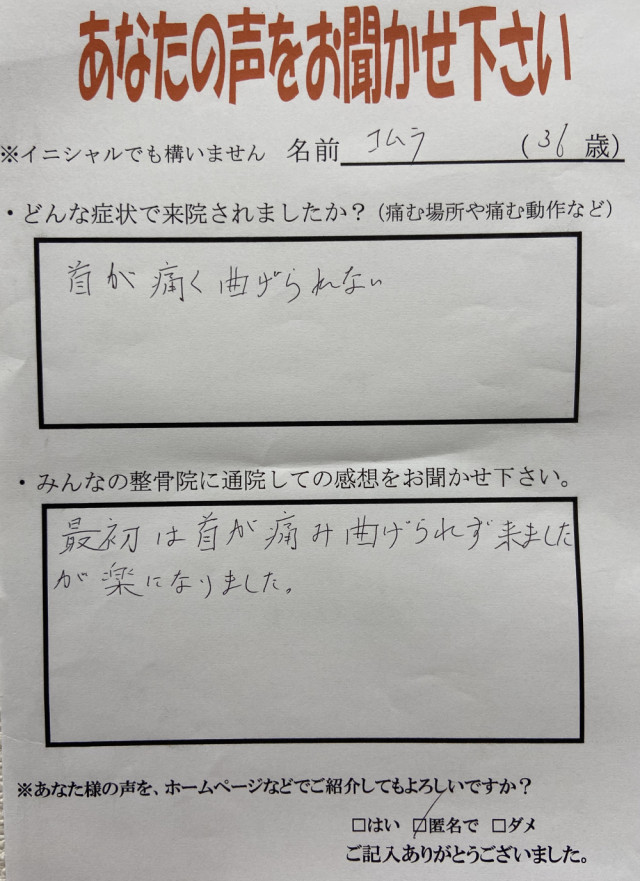 あなたの声をお聞かせ下さい
※イニシャルでも構いません 名前 コムラ (36歳)
・どんな症状で来院されましたか？(痛む場所や痛む動作など)
首が痛く曲げられない
・みんなの整骨院に通院しての感想をお聞かせ下さい。
最初は首が痛み曲げられず来ました
が楽になりました。
※あなた様の声を、ホームページなどでご紹介してもよろしいですか？
□はい ☑匿名で □ダメ
ご記入ありがとうございました。